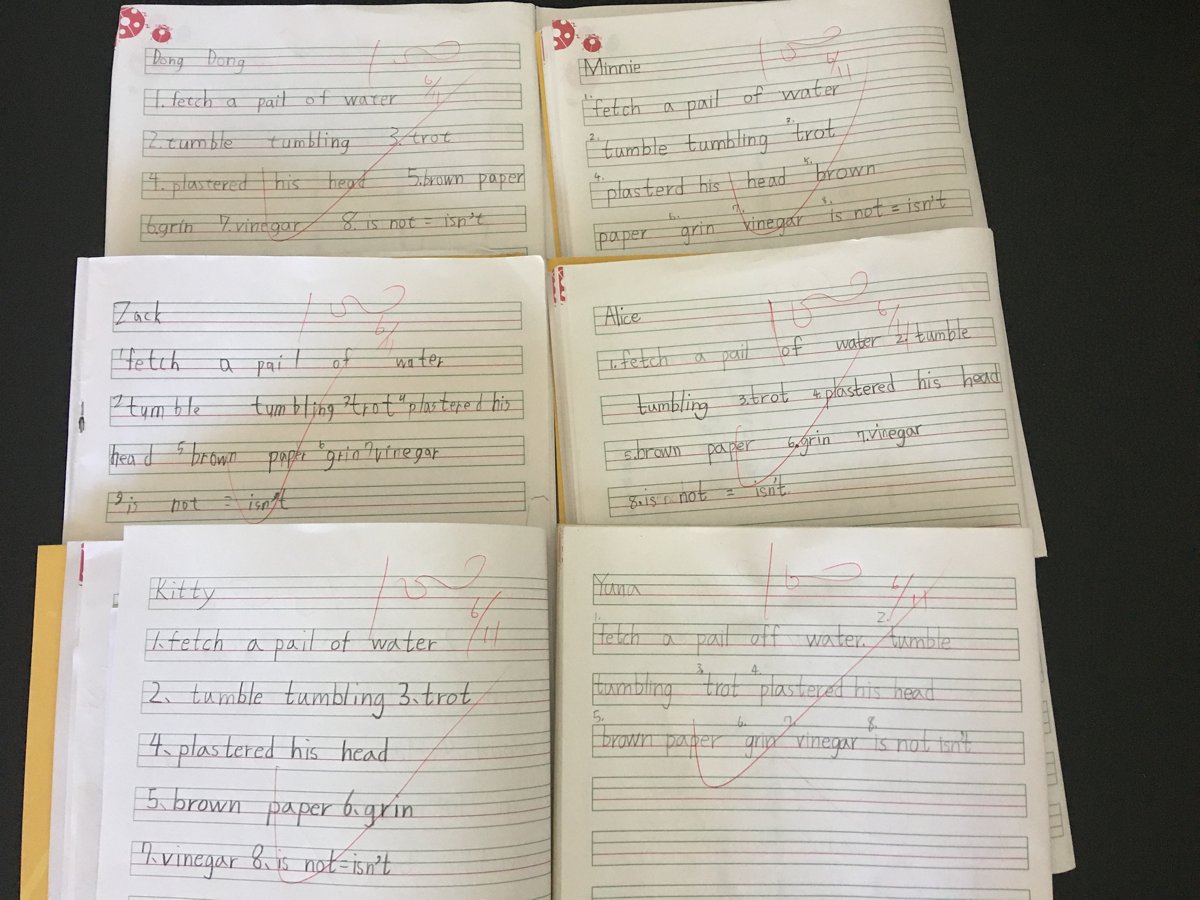 Dong Dong
1. fetch a pail of water
2. tumble tumbling 3. trot
4. plastered his head 5. brown paper
6. grin 7. vinegar 8. is not = isn't
100
6/11
Minnie
1. fetch a pail of water
2. tumble tumbling 3. trot
4. plasterd his head 5. brown
paper 6. grin 7. vinegar 8. is not = isn't
100
6/11
Zack
1 fetch a pail of water
2 tumble tumbling 3 trot 4 plastered his
head 5 brown paper 6 grin 7 vinegar
is not = isn't
100
6/11
Alice
1. fetch a pail of water 2. tumble
tumbling 3. trot 4. plastered his head
5. brown paper 6. grin 7. vinegar
8. is not = isn't
100
6/11
Kitty
1. fetch a pail of water
2、 tumble tumbling 3、trot
4、plastered his head
5、brown paper 6、grin
7、vinegar 8、is not=isn't
100
6/11
Yuna
1. fetch a pail off water. 2. tumble
tumbling 3. trot 4. plastered his head
5. brown paper 6. grin 7. vinegar 8. is not isn't
100
6/11